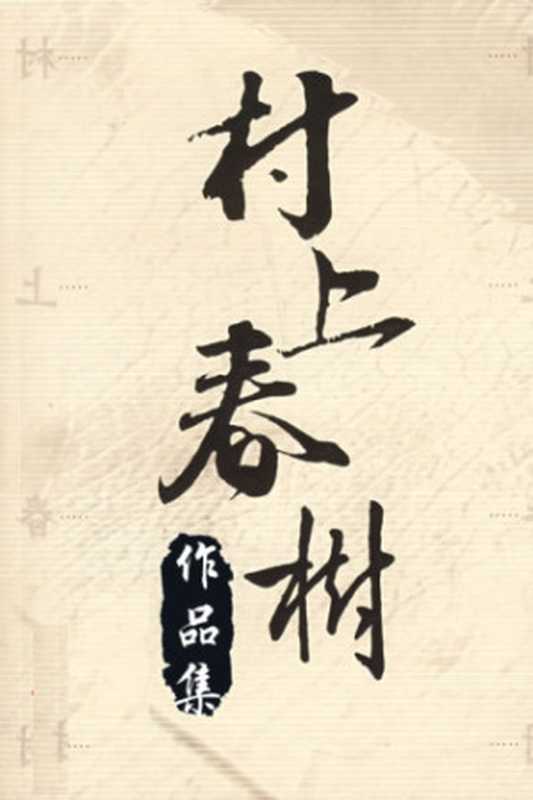 村上春树
作品集
村
上
春
村